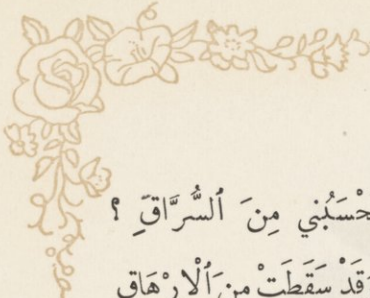 حْسَبُنِي مِنَ ٱلسُّرَّاقِ ؟
قَدْ سَقَطَتْ مِنَ ٱلْارْهَاقِ